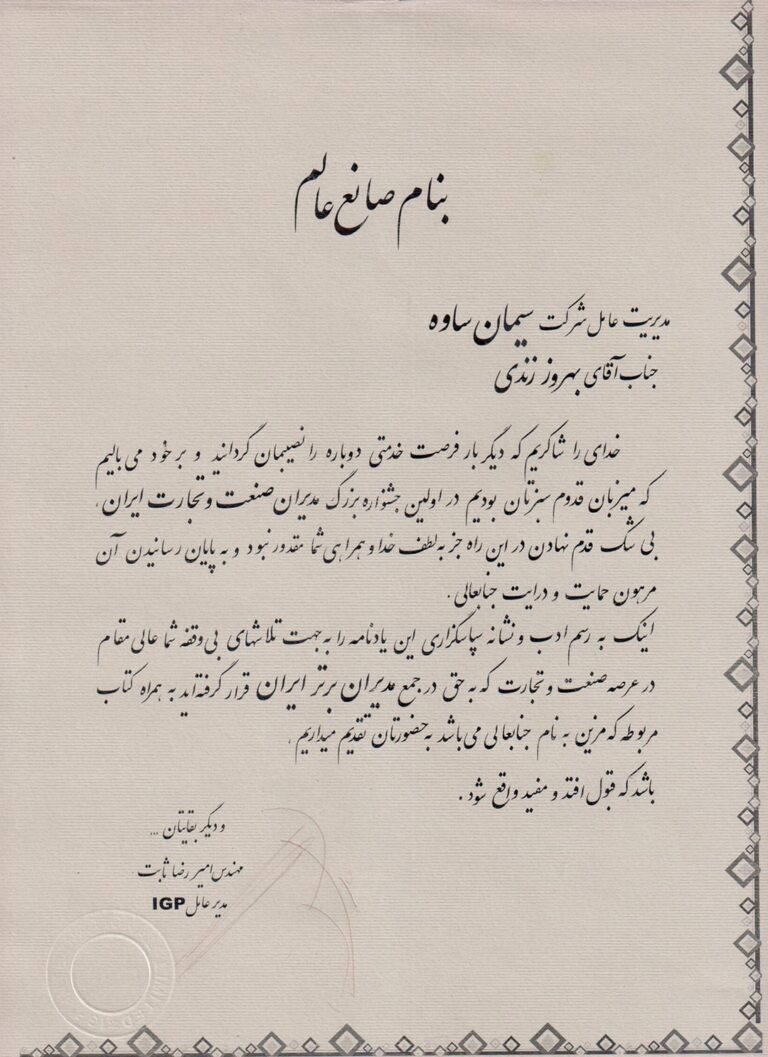 بنام صانع عالم
مدیریت عامل شرکت سیمان ساوه
جناب آقای بهروز زندی
خدای را شاکریم که دیگر بار فرصت خدمتی دوباره را نصیبمان گردانید و بر خود می بالیم
که میزبان قدوم سبزتان بودیم در اولین جشنواره بزرگ مدیران صنعت و تجارت ایران.
بی شک قدم نهادن در این راه جز به لطف خدا و همراهی شما مقدور نبود و به پایان رسانیدن آن
مرهون حمایت و درایت جنابعالی.
اینک به رسم ادب و نشانه سپاسگزاری این یادنامه را به جهت تلاشهای بی وقفه شما عالی مقام
در عرصه صنعت و تجارت که به حق در جمع مدیران برتر ایران قرار گرفته اید به همراه کتاب
مربوطه که مزین به نام جنابعالی می باشد به حضورتان تقدیم میداریم.
باشد که قبول افتد و مفید واقع شود.
و دیگر بقایتان ...
مهندس امیر رضا ثابت
مدیر عامل IGP